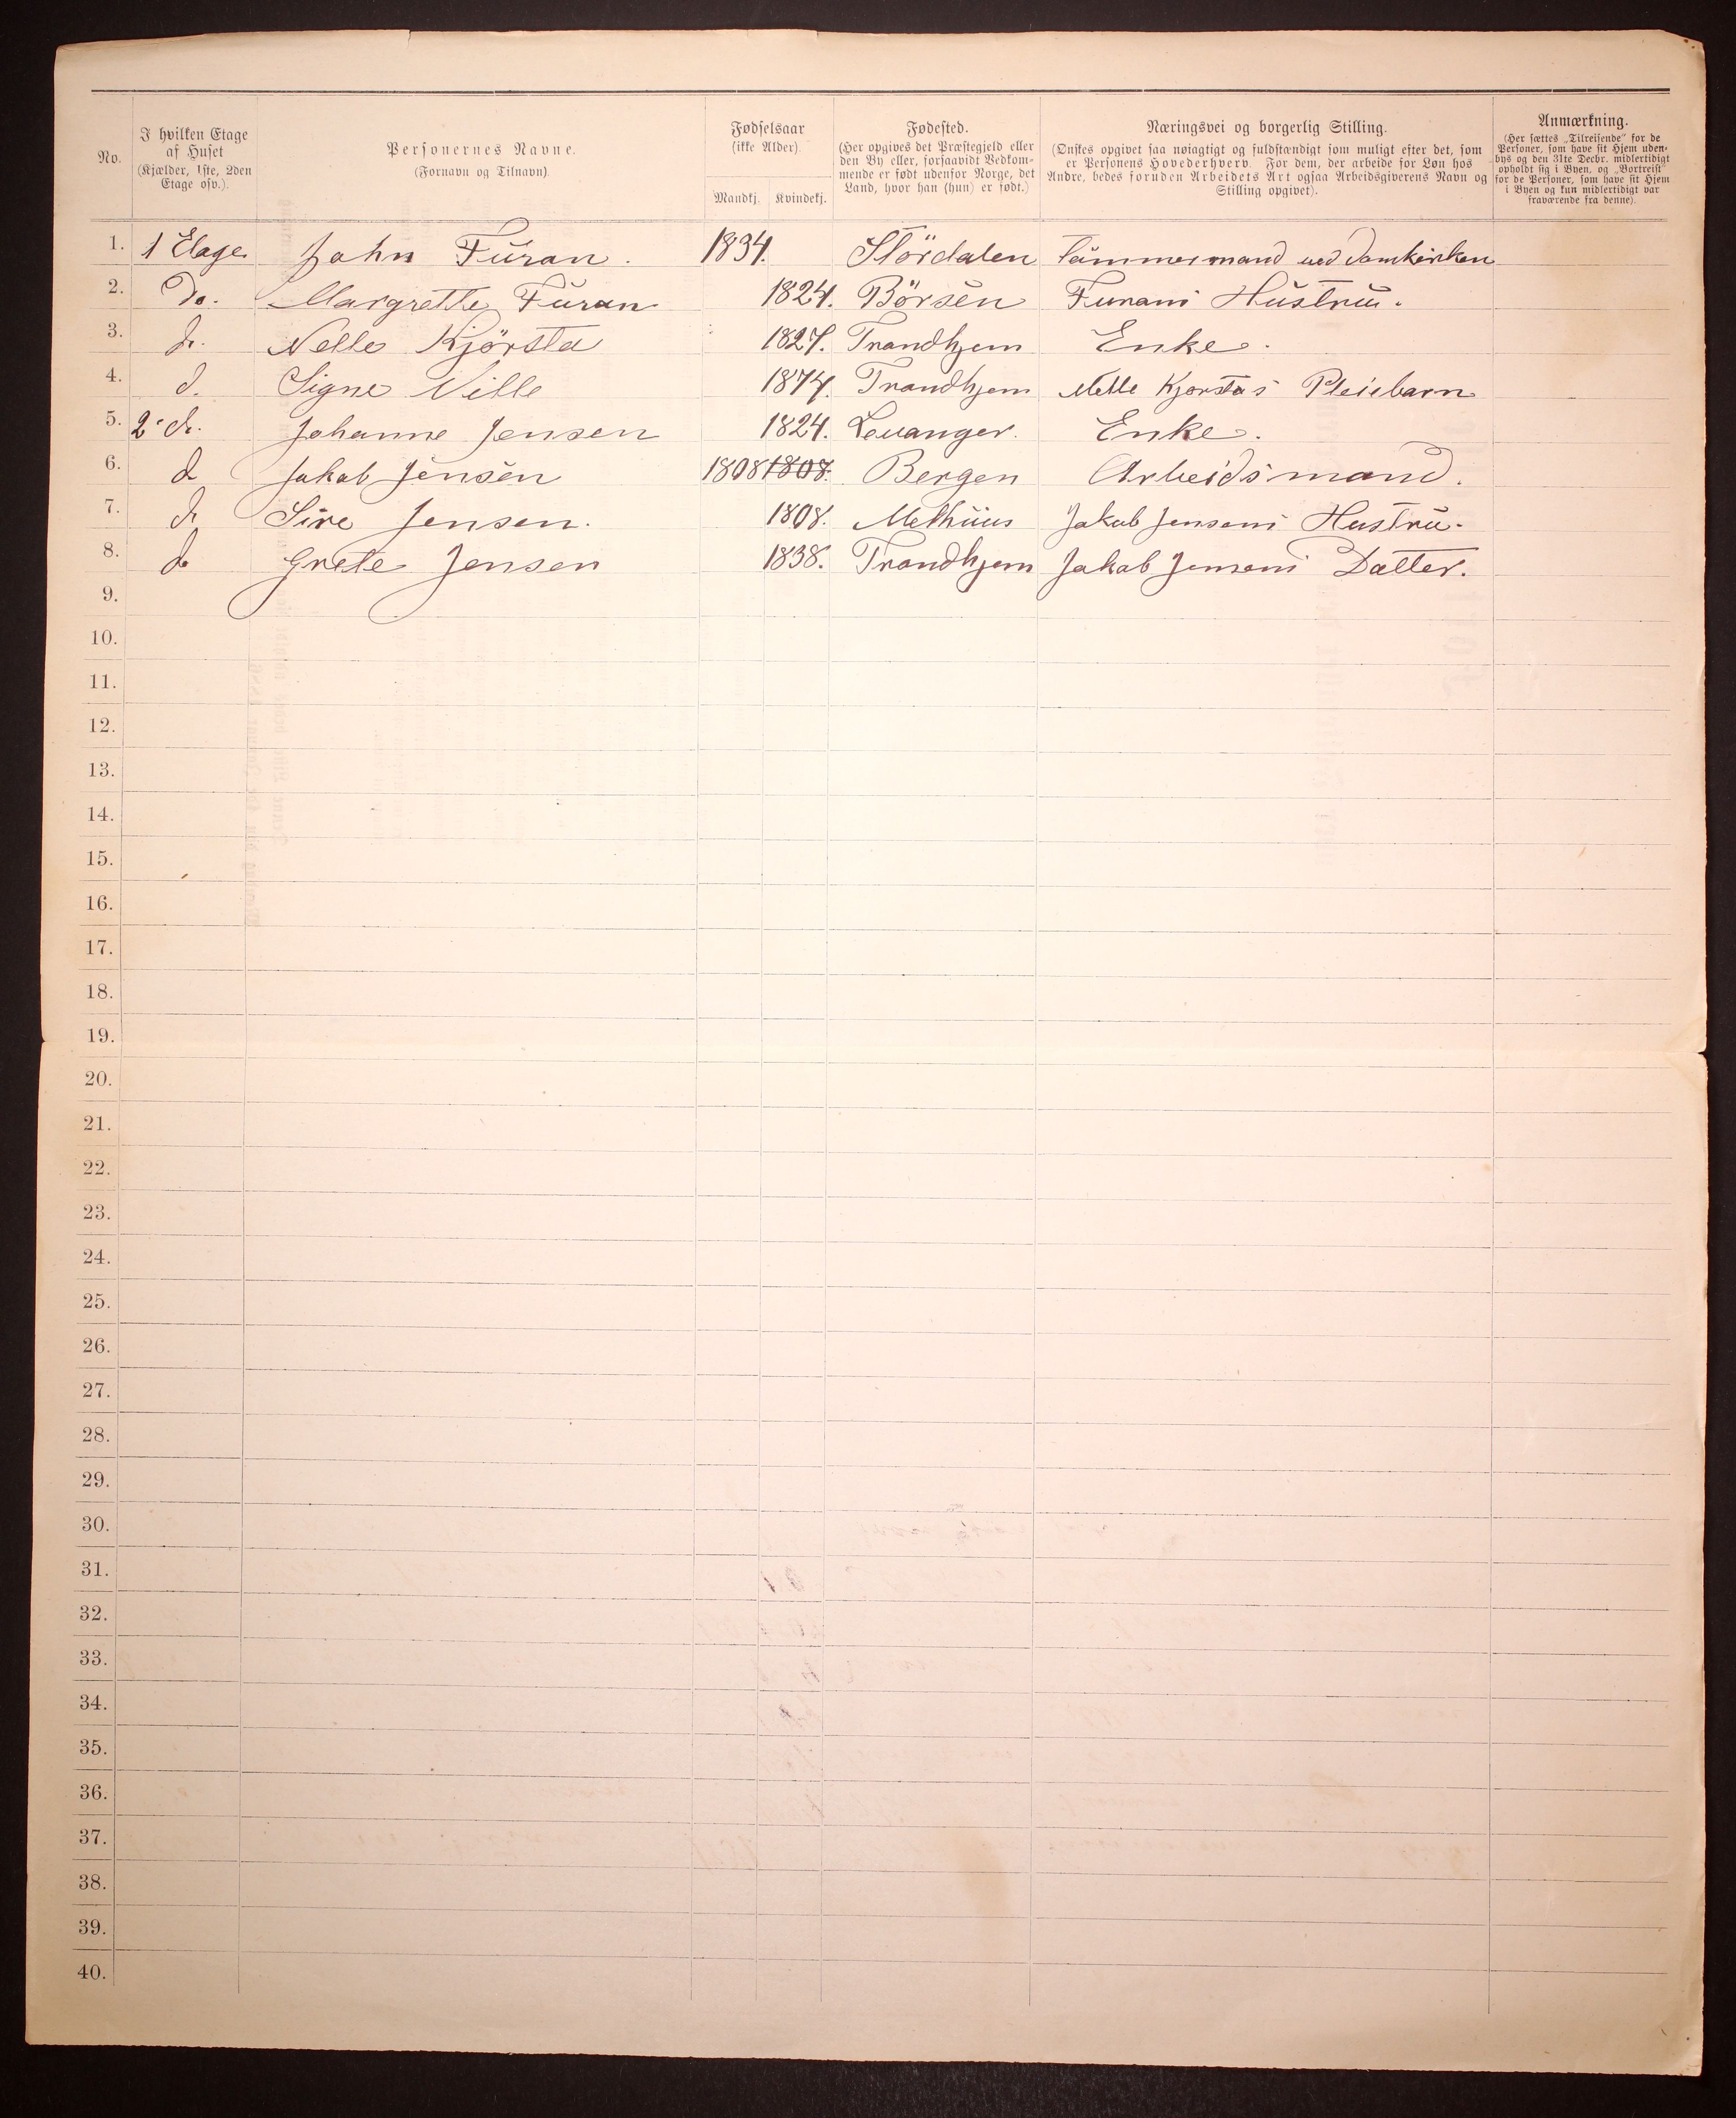 No.
I hvilken Etage
af Huset
(Kjælder, 1ste, 2den
Etage osv.).
Personernes Navne.
(Fornavn og Tilnavn).
Fødselsaar
(ikke Alder).
Mandkj.
Kvindekj.
Fødested.
(Her opgives det Præstegjeld eller
den By eller, forsaavidt Vedkom-
mende er født udenfor Norge, det
Land, hvor han (hun) er født.)
Næringsvei og borgerlig Stilling.
(Ønskes opgivet saa nøiagtigt og fuldstændigt som muligt efter det, som
er Personens Hovederhverv. For dem, der arbeide for Løn hos
Andre, bedes foruden Arbeidets Art ogsaa Arbeidsgiverens Navn og
Stilling opgivet).
Anmærkning.
(Her sættes „Tilreisende“ for de
Personer, som have sit Hjem uden-
bys og den 31te Decbr. midlertidigt
opholdt sig i Byen, og „Bortreist“
for de Personer, som have sit Hjem
i Byen og kun midlertidigt var
fraværende fra denne).
1. 1 Etage John Furan. 1834. Stördalen Tømmermand ved Domkirken
2. Do. Margrethe Furan 1824. Börsen Furans Hustru.
3. do. Nelle Kjörsta 1827. Trondhjem Enke.
4. d. Signe Nille 1874. Trondhjem Mette Kjorstas Pleiebarn
5. 2. do. Johanne Jensen 1824. Levanger. Enke.
6. d Jakob Jensen 1808 1808. Bergen Arbeidsmand.
7. do Sire Jensen. 1808. Melhuus Jakob Jensens Hustru.
8. do Grete Jensen 1838. Trondhjem Jakob Jensens Datter.
9.
10.
11.
12.
13.
14.
15.
16.
17.
18.
19.
20.
21.
22.
23.
24.
25.
26.
27.
28.
29.
30.
31.
32.
33.
34.
35.
36.
37.
38.
39.
40.